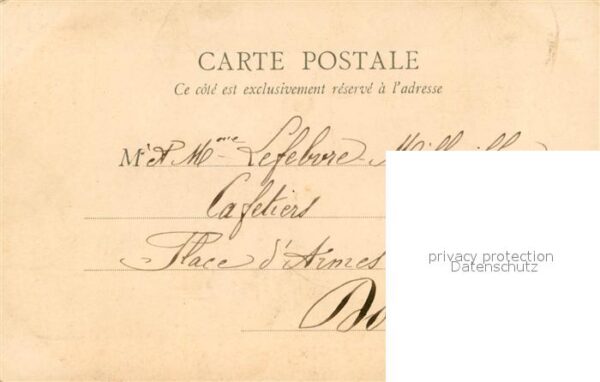 CARTE POSTALE
Ce côté est exclusivement réservé à l'adresse
Mr et Mme Lefebvre
Cafetiers
Place d'Armes
privacy protection
Datenschutz